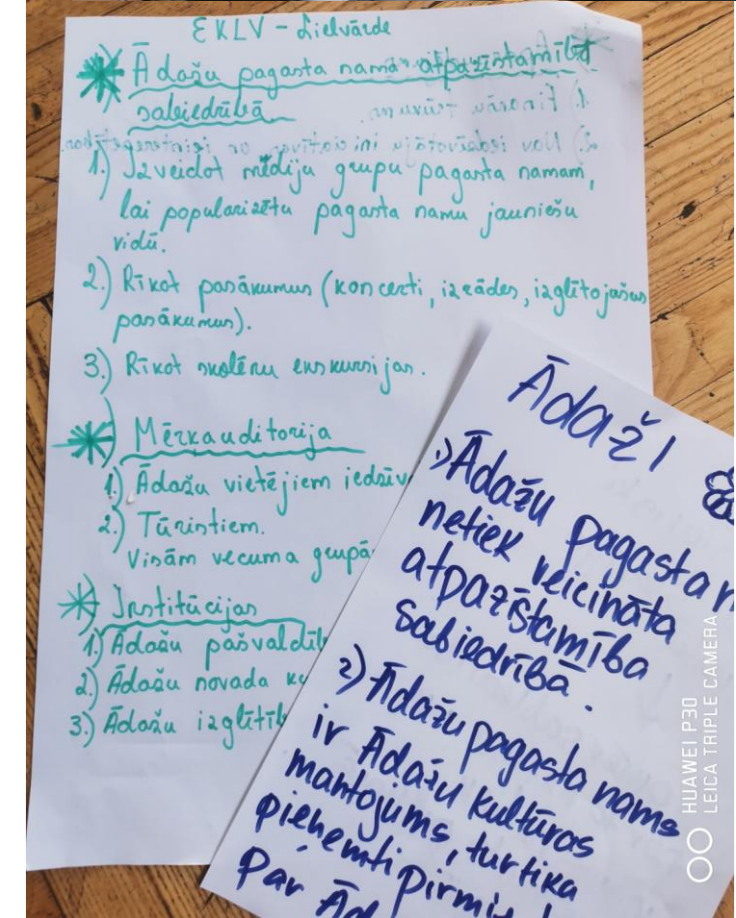 EKLV - Lielvārde
Ādažu pagasta nama atpazīstamība
sabiedrībā
1.) Izveidot mēdiju grupu pagasta namam,
lai popularizētu pagasta namu jauniešu
vidū.
2.) Rīkot pasākumus (koncerti, izrādes, izglītojošus
pasākumus).
3.) Rīkot skolēnu ekskursijas.
Mērkauditorija
1.) Ādažu vietējiem iedzīv
2.) Tūristiem.
Visām vecuma grupā
Institūcijas
1.) Ādažu pašvaldīb
2.) Ādažu novada ku
3.) Ādažu izglītīb
ĀdažI
1) Ādažu pagasta n
netiek veicināta
atpazīstamība
sabiedrībā.
2) Ādažu pagasta nams
ir Ādažu kultūras
mantojums, tur tika
pieņemti pirmie
par Ād
HUAWEI P30
LEICA TRIPLE CAMERA